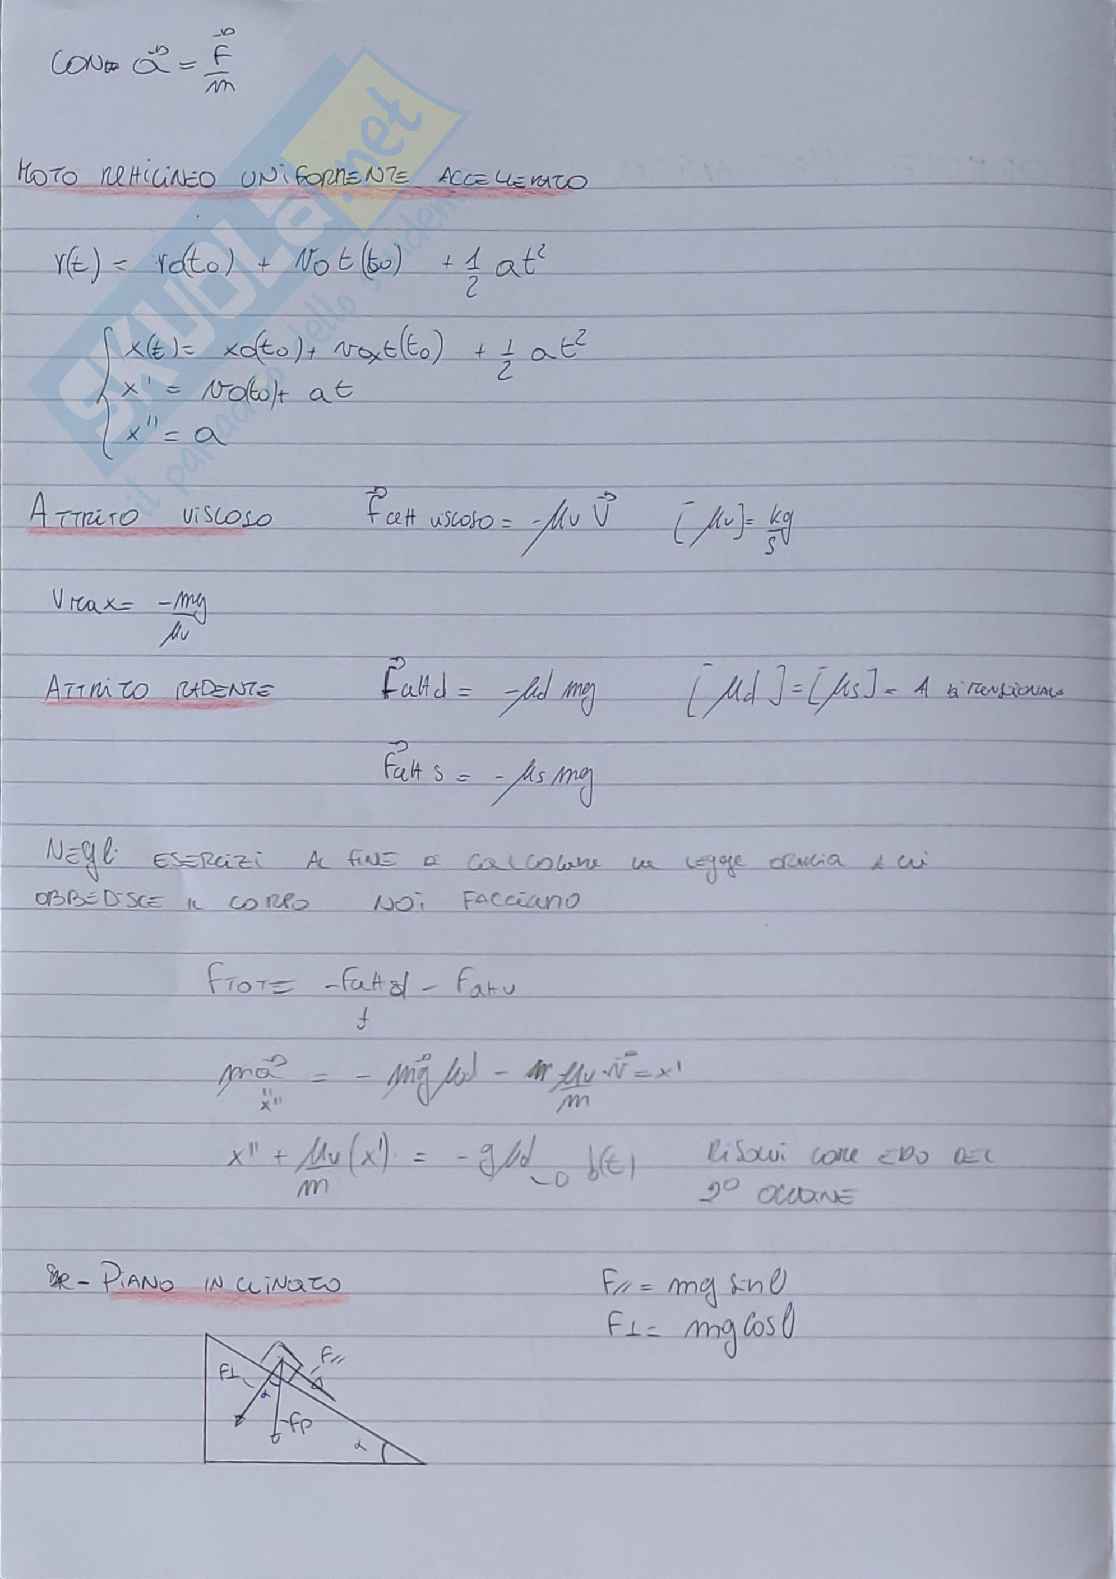 CON → a⃗ = F⃗/m
MOTO RETTILINEO UNIFORMENTE ACCELLERATO
r(t) = r0(t0) + v0t(t0) + 1/2 at²
x(t) = x0(t0) + v0xt(t0) + 1/2 at²
x' = v0(t0) + at
x'' = a
ATTRITO VISCOSO F⃗att viscoso = -μv v⃗ [μv] = kg/s
Vmax = -mg/μv
ATTRITO RADENTE F⃗att d = -μd mg [μd] = [μs] = ADIMENSIONALE
F⃗att s = -μs mg
NEGLI ESERCIZI AL FINE DI CALCOLARE LA LEGGE ORARIA A CUI
OBBEDISCE IL CORPO NOI FACCIAMO
FTOT = -Fatt d - Fatt v
ma⃗ = - mg⃗ μd - μv/m · v⃗ = x'
x''
x'' + μv/m (x') = -gμd → b(t) RISOLVI COME EDO DEL
2° ORDINE
- PIANO INCLINATO F// = mg sinθ
F⊥ = mg cosθ
F//
F⊥
α
Fp
α
SKUOLA.net
il paradiso dello studente